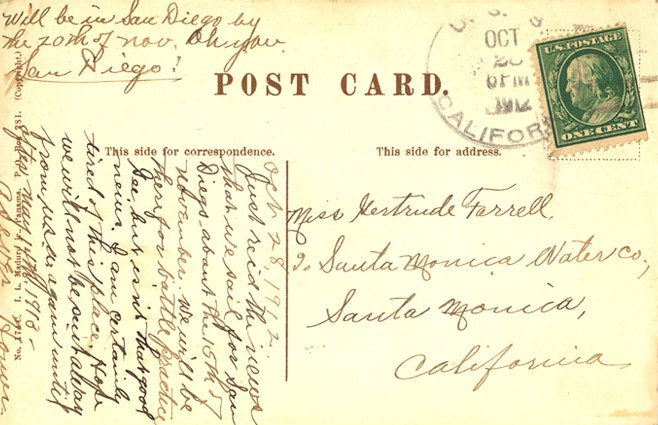 Will be in San Diego by
the 20th of nov. Oh you
San Diego!
POST CARD.
OCT
28
6 PM
1912
CALIFOR
U.S. POSTAGE
ONE CENT
This side for correspondence.
This side for address.
Oct. 28, 1912.
Just rec'd the news
that we sail for San
Diego about the 15th of
november. We will be
there for battle practice
Gee, but isn't that good
news. I am certainly
tired of this place. Hope
we will not be sent away
from U.S.A. again until
after May 1st 1913 -
Miss Gertrude Farrell.
c/o Santa Monica Water Co.,
Santa Monica,
California
I. L. Maduro Jr., Panama, P. O. Box 281. (Copyright.)